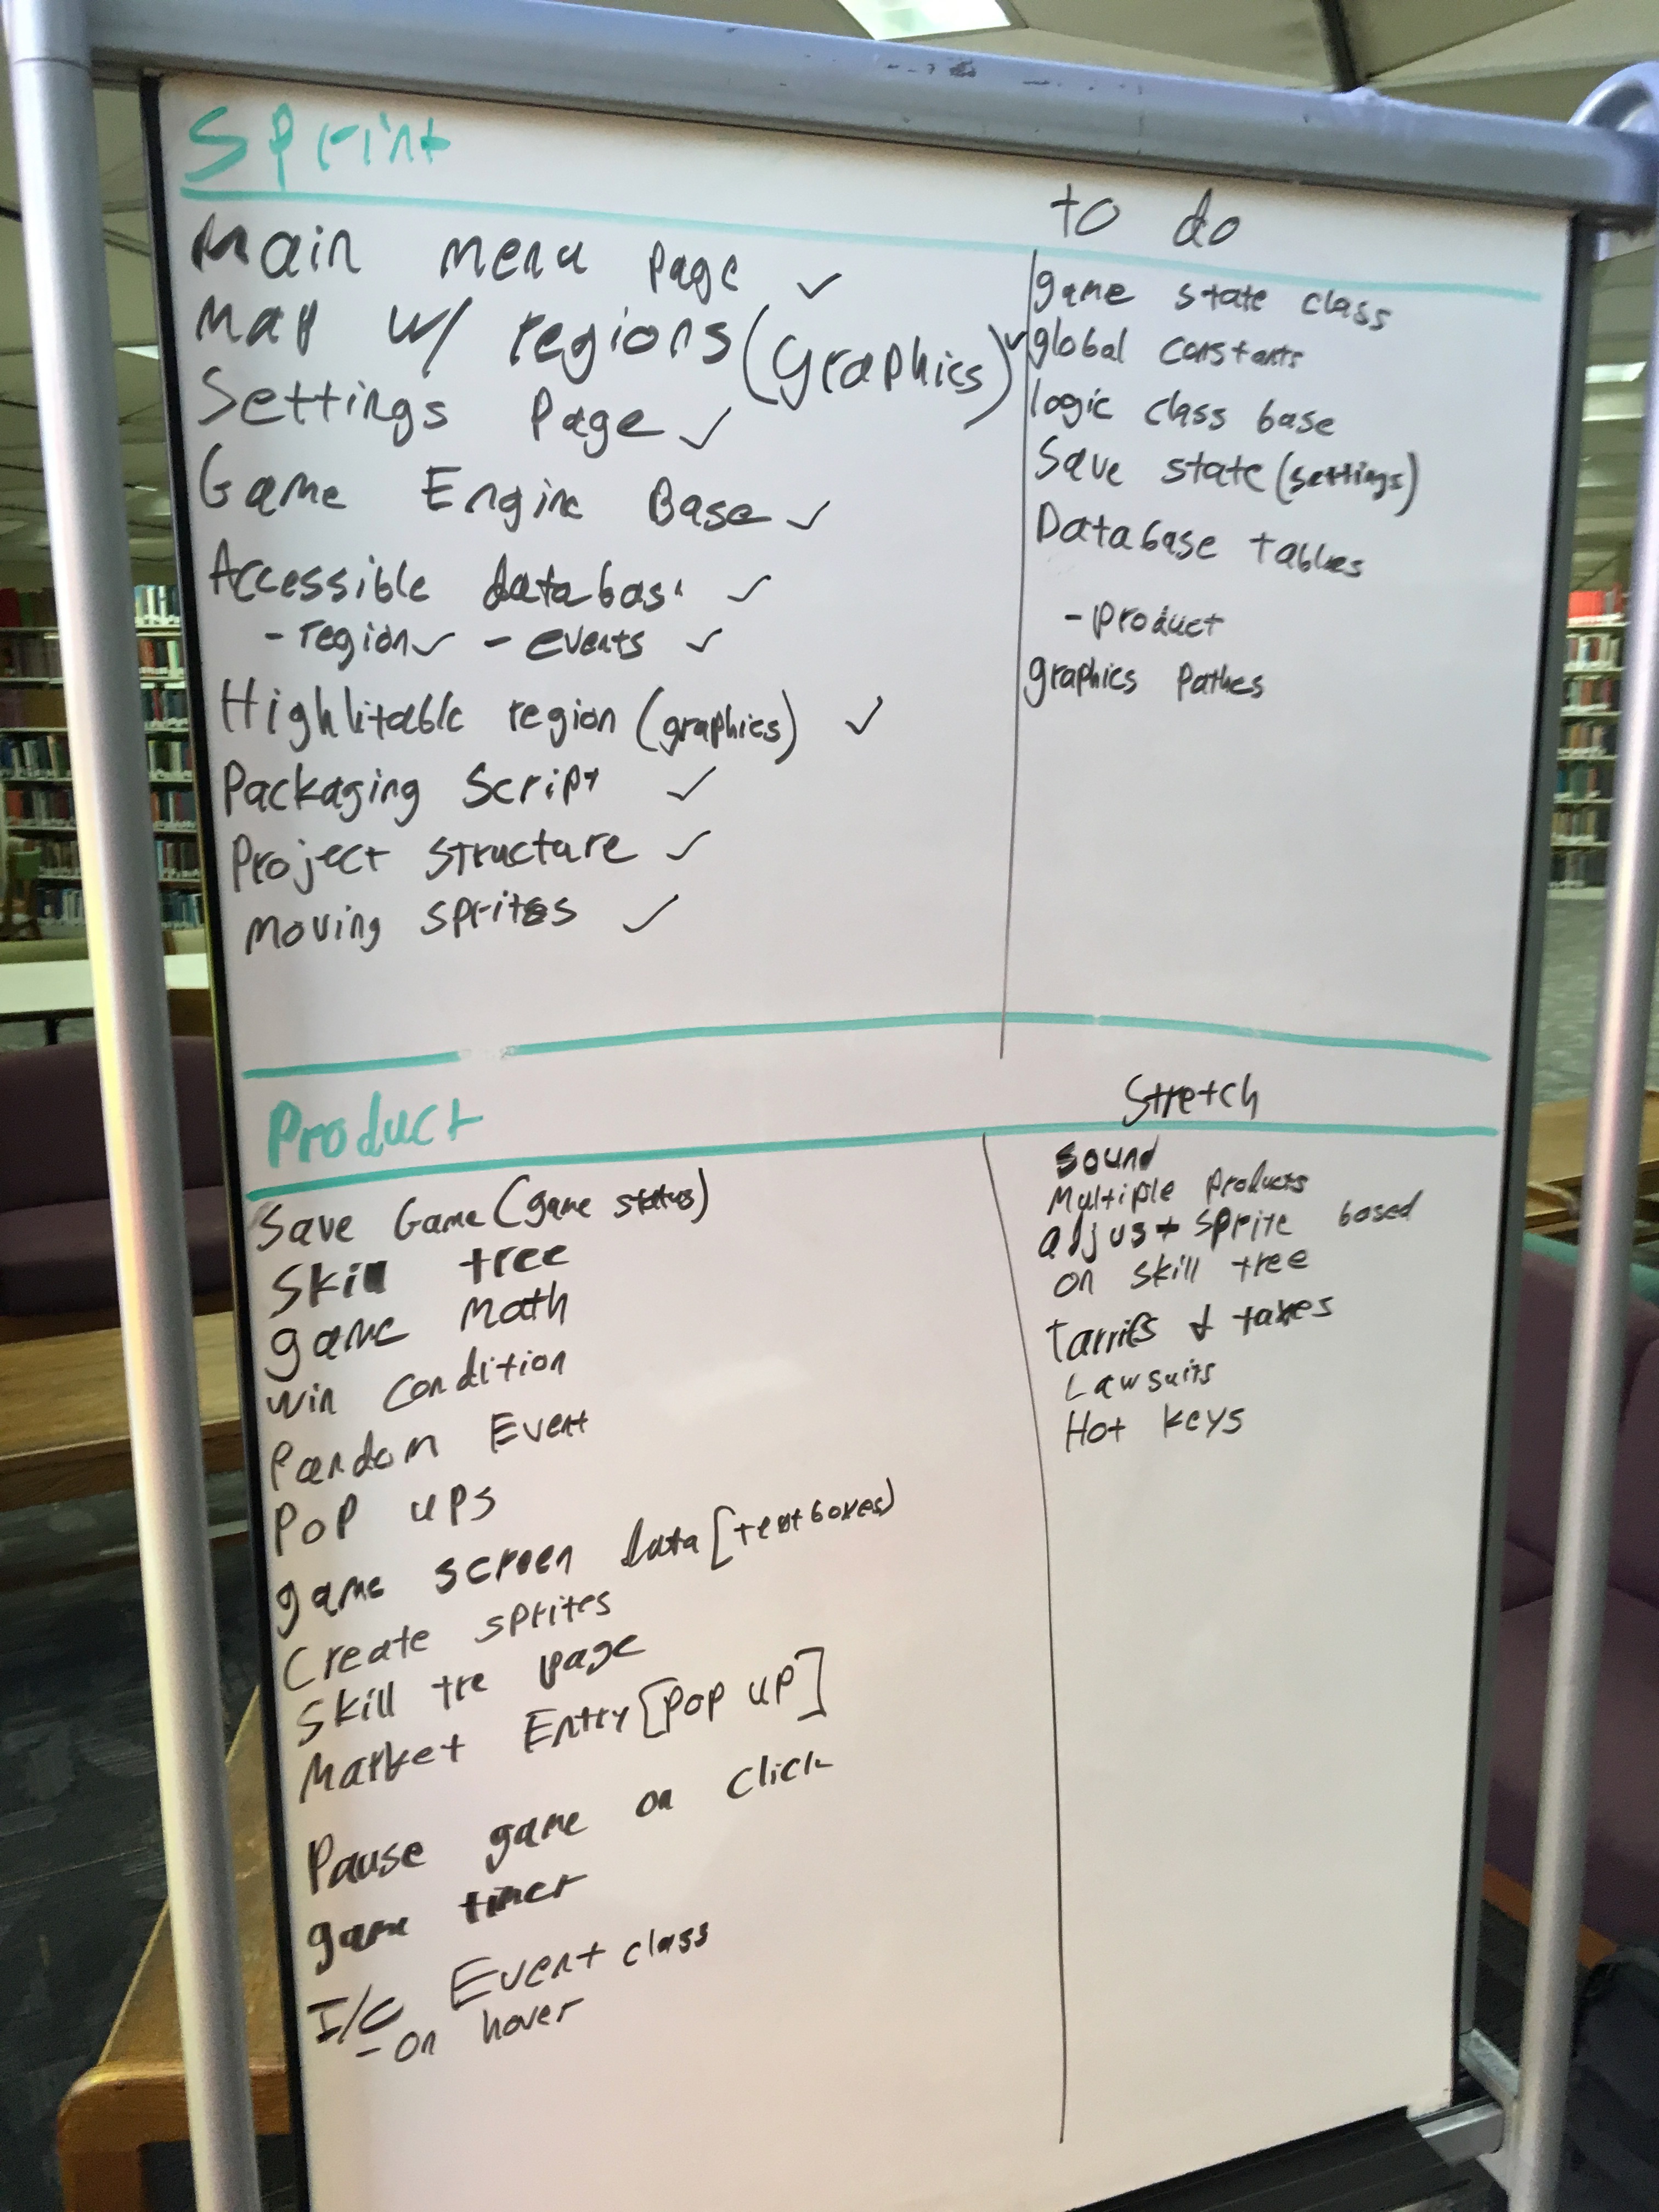 Sprint
Main menu page ✓
Map w/ regions (graphics) ✓
Settings Page ✓
Game Engine Base ✓
Accessible databas ✓
- region ✓ - events ✓
Highlitable region (graphics) ✓
Packaging Script ✓
Project structure ✓
moving sprites ✓
to do
game state class
global constants
logic class base
Save state (settings)
Database tables
- product
graphics Pathes
Product
Save Game (game status)
Skill tree
game Math
win condition
Random Event
Pop ups
game screen data [textboxes)
Create sprites
Skill tre page
Market Entry [Pop up]
Pause game on click
game timer
I/O Event class
- on hover
Stretch
Sound
Multiple Products
adjust sprite based
on skill tree
Tarrifs & taxes
Lawsuits
Hot keys